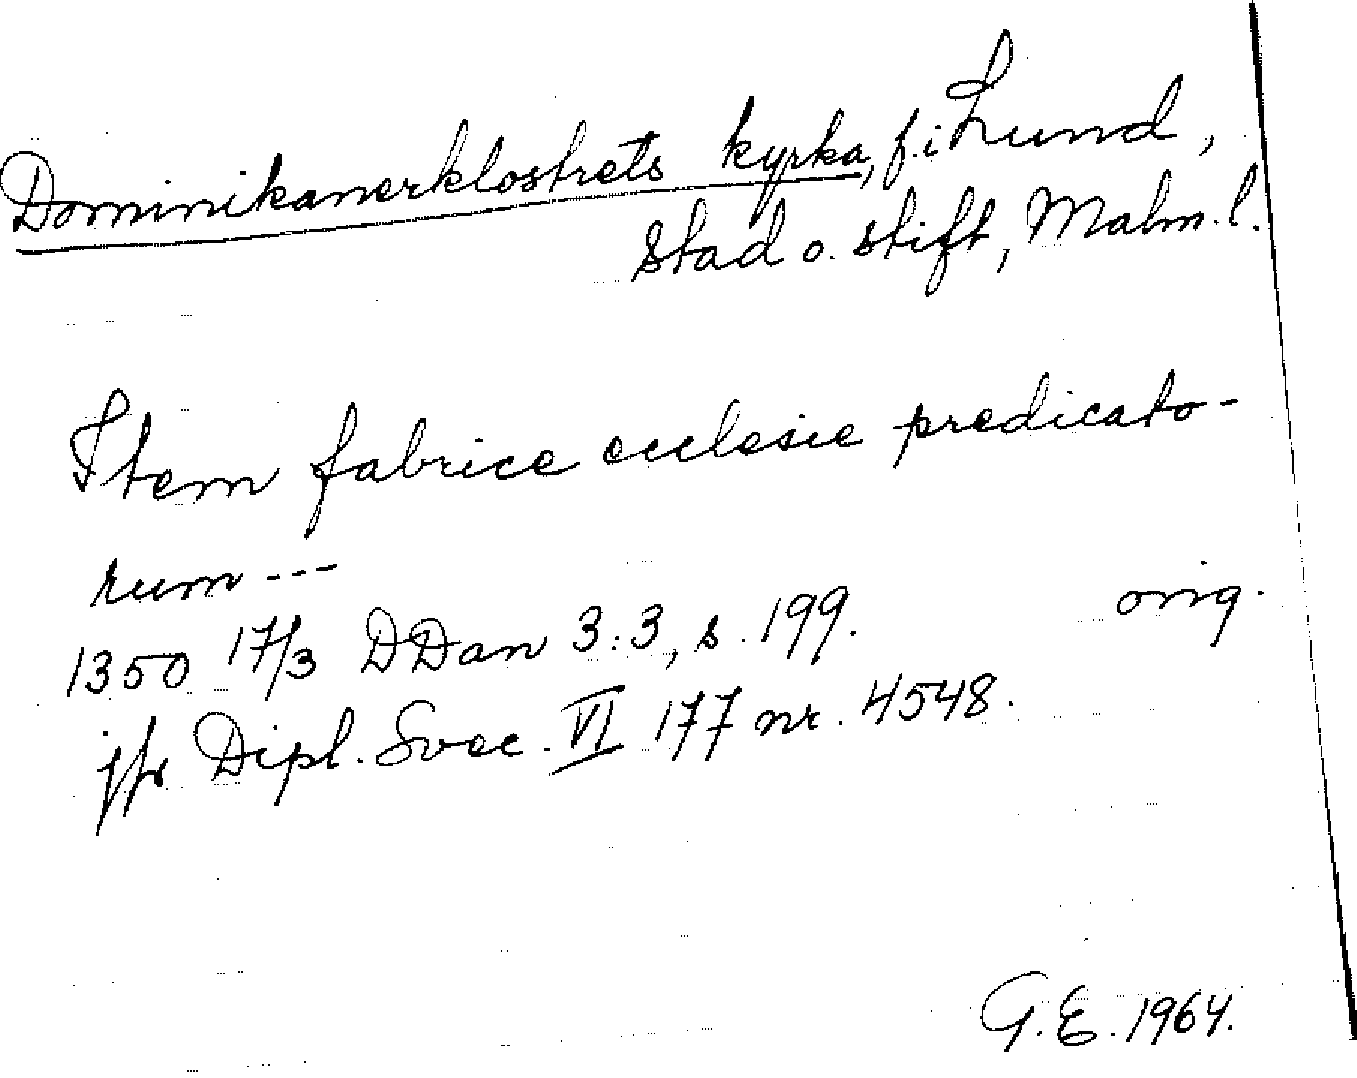 Dominikanerklostrets kyrka, f. i Lund,
stad o. stift, Malm. l.
Item fabrice ecclesie predicato-
rum ---
1350 17/3 DDan 3:3, s. 199. orig.
jfr Dipl. Svec. VI 177 nr. 4548.
G. E. 1964.